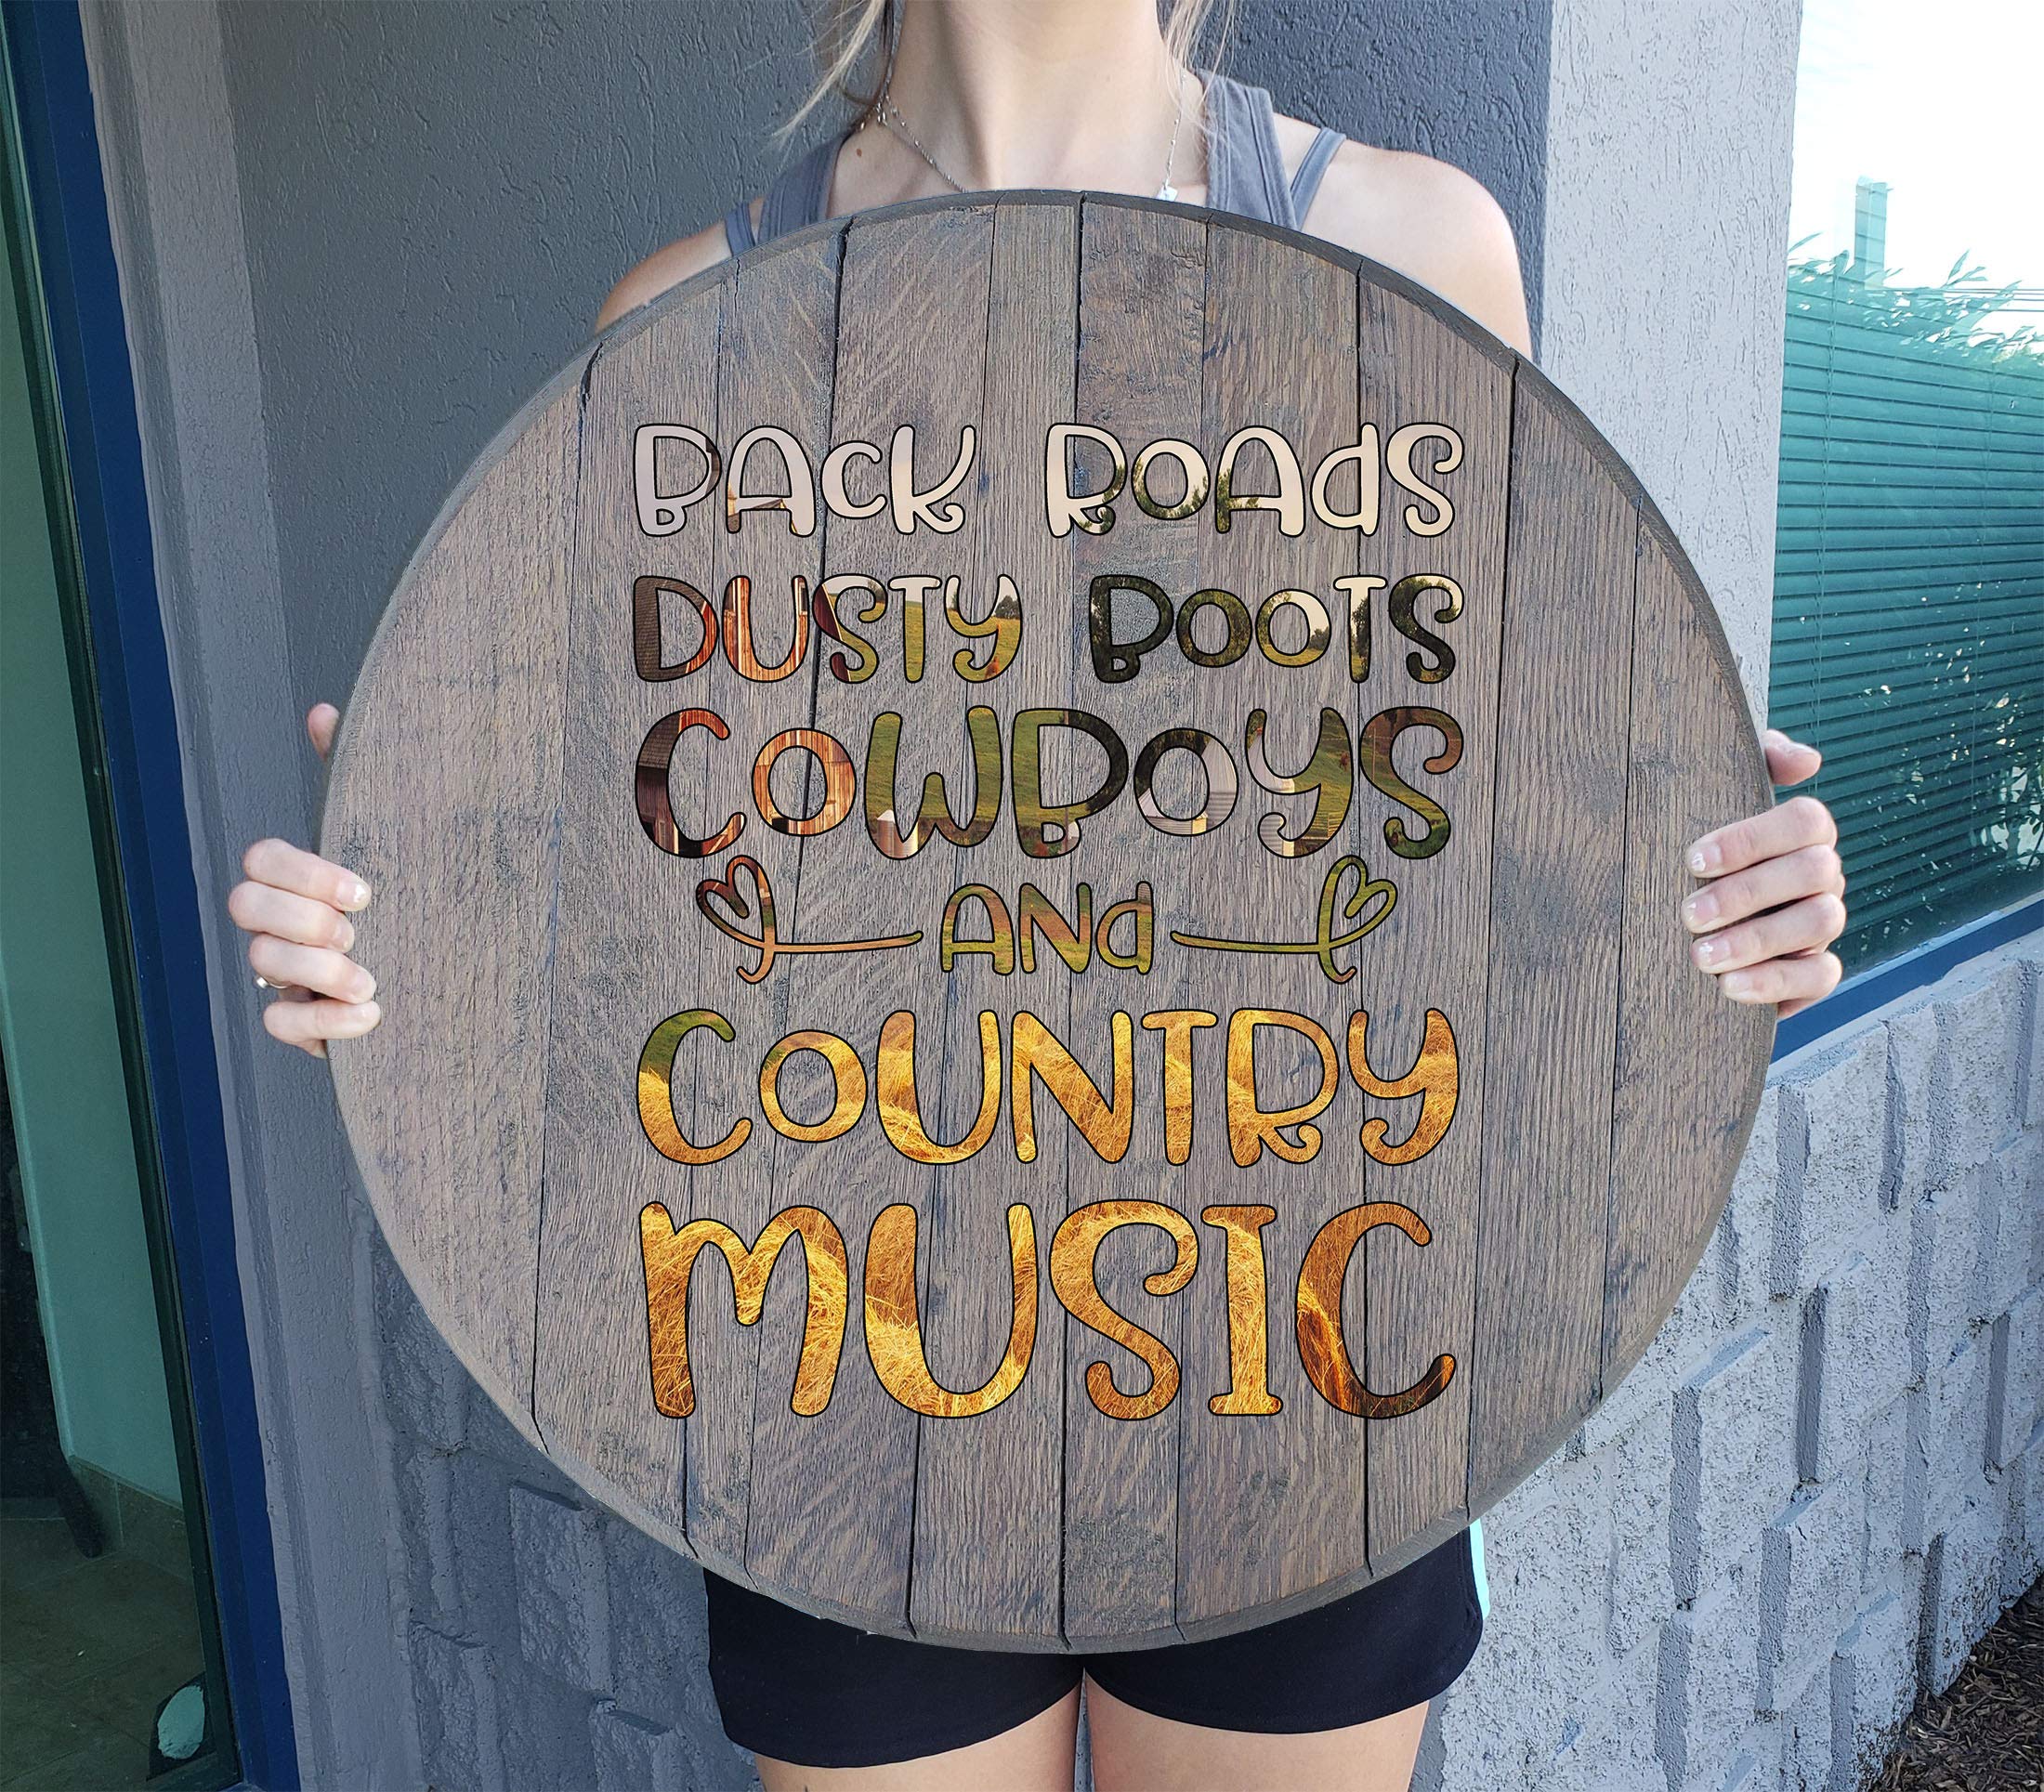 BACK ROADS
DUSTY BOOTS
COWBOYS
AND
COUNTRY
MUSIC